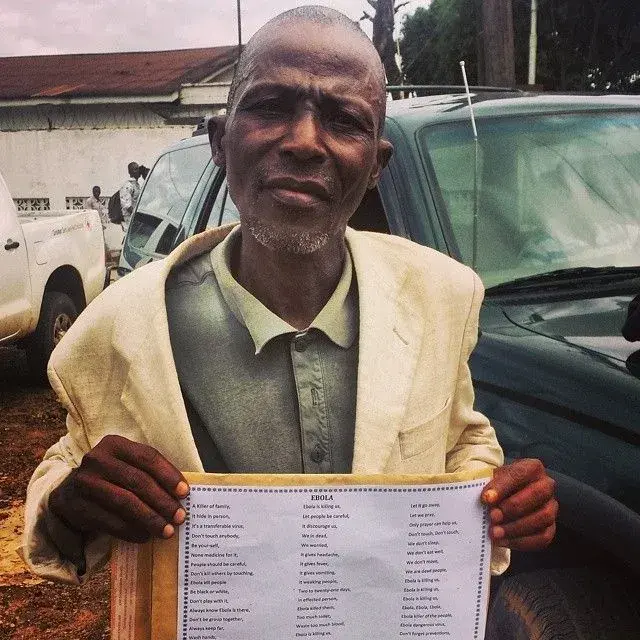 EBOLA
A Killer of family,
It hide in person,
It's a transferable virus,
Don't touch anybody,
Be your-self,
None medicine for it,
People should be careful,
Don't kill others by touching,
Ebola kill people
Be black or white,
Don't play with it,
Always know Ebola is there,
Don't be group together,
Always keep far,
Wash hands,
Ebola is killing us,
Let people be careful,
It discourage us,
We in dead,
We worried,
It gives headache,
It gives fever,
It gives vomiting,
It weaking people,
Two to twenty-one days,
In effected person,
Ebola killed them,
Too much sister,
Waste too much blood,
Ebola is killing us,
Let it go away,
Let we pray,
Only prayer can help us,
Don't touch, Don't touch,
We don't sleep,
We don't eat well,
We don't move,
We are dead people,
Ebola is killing us,
Ebola is killing us,
Ebola, Ebola, Ebola,
Ebola killer of the people,
Ebola dangerous virus,
Don't forget preventions,